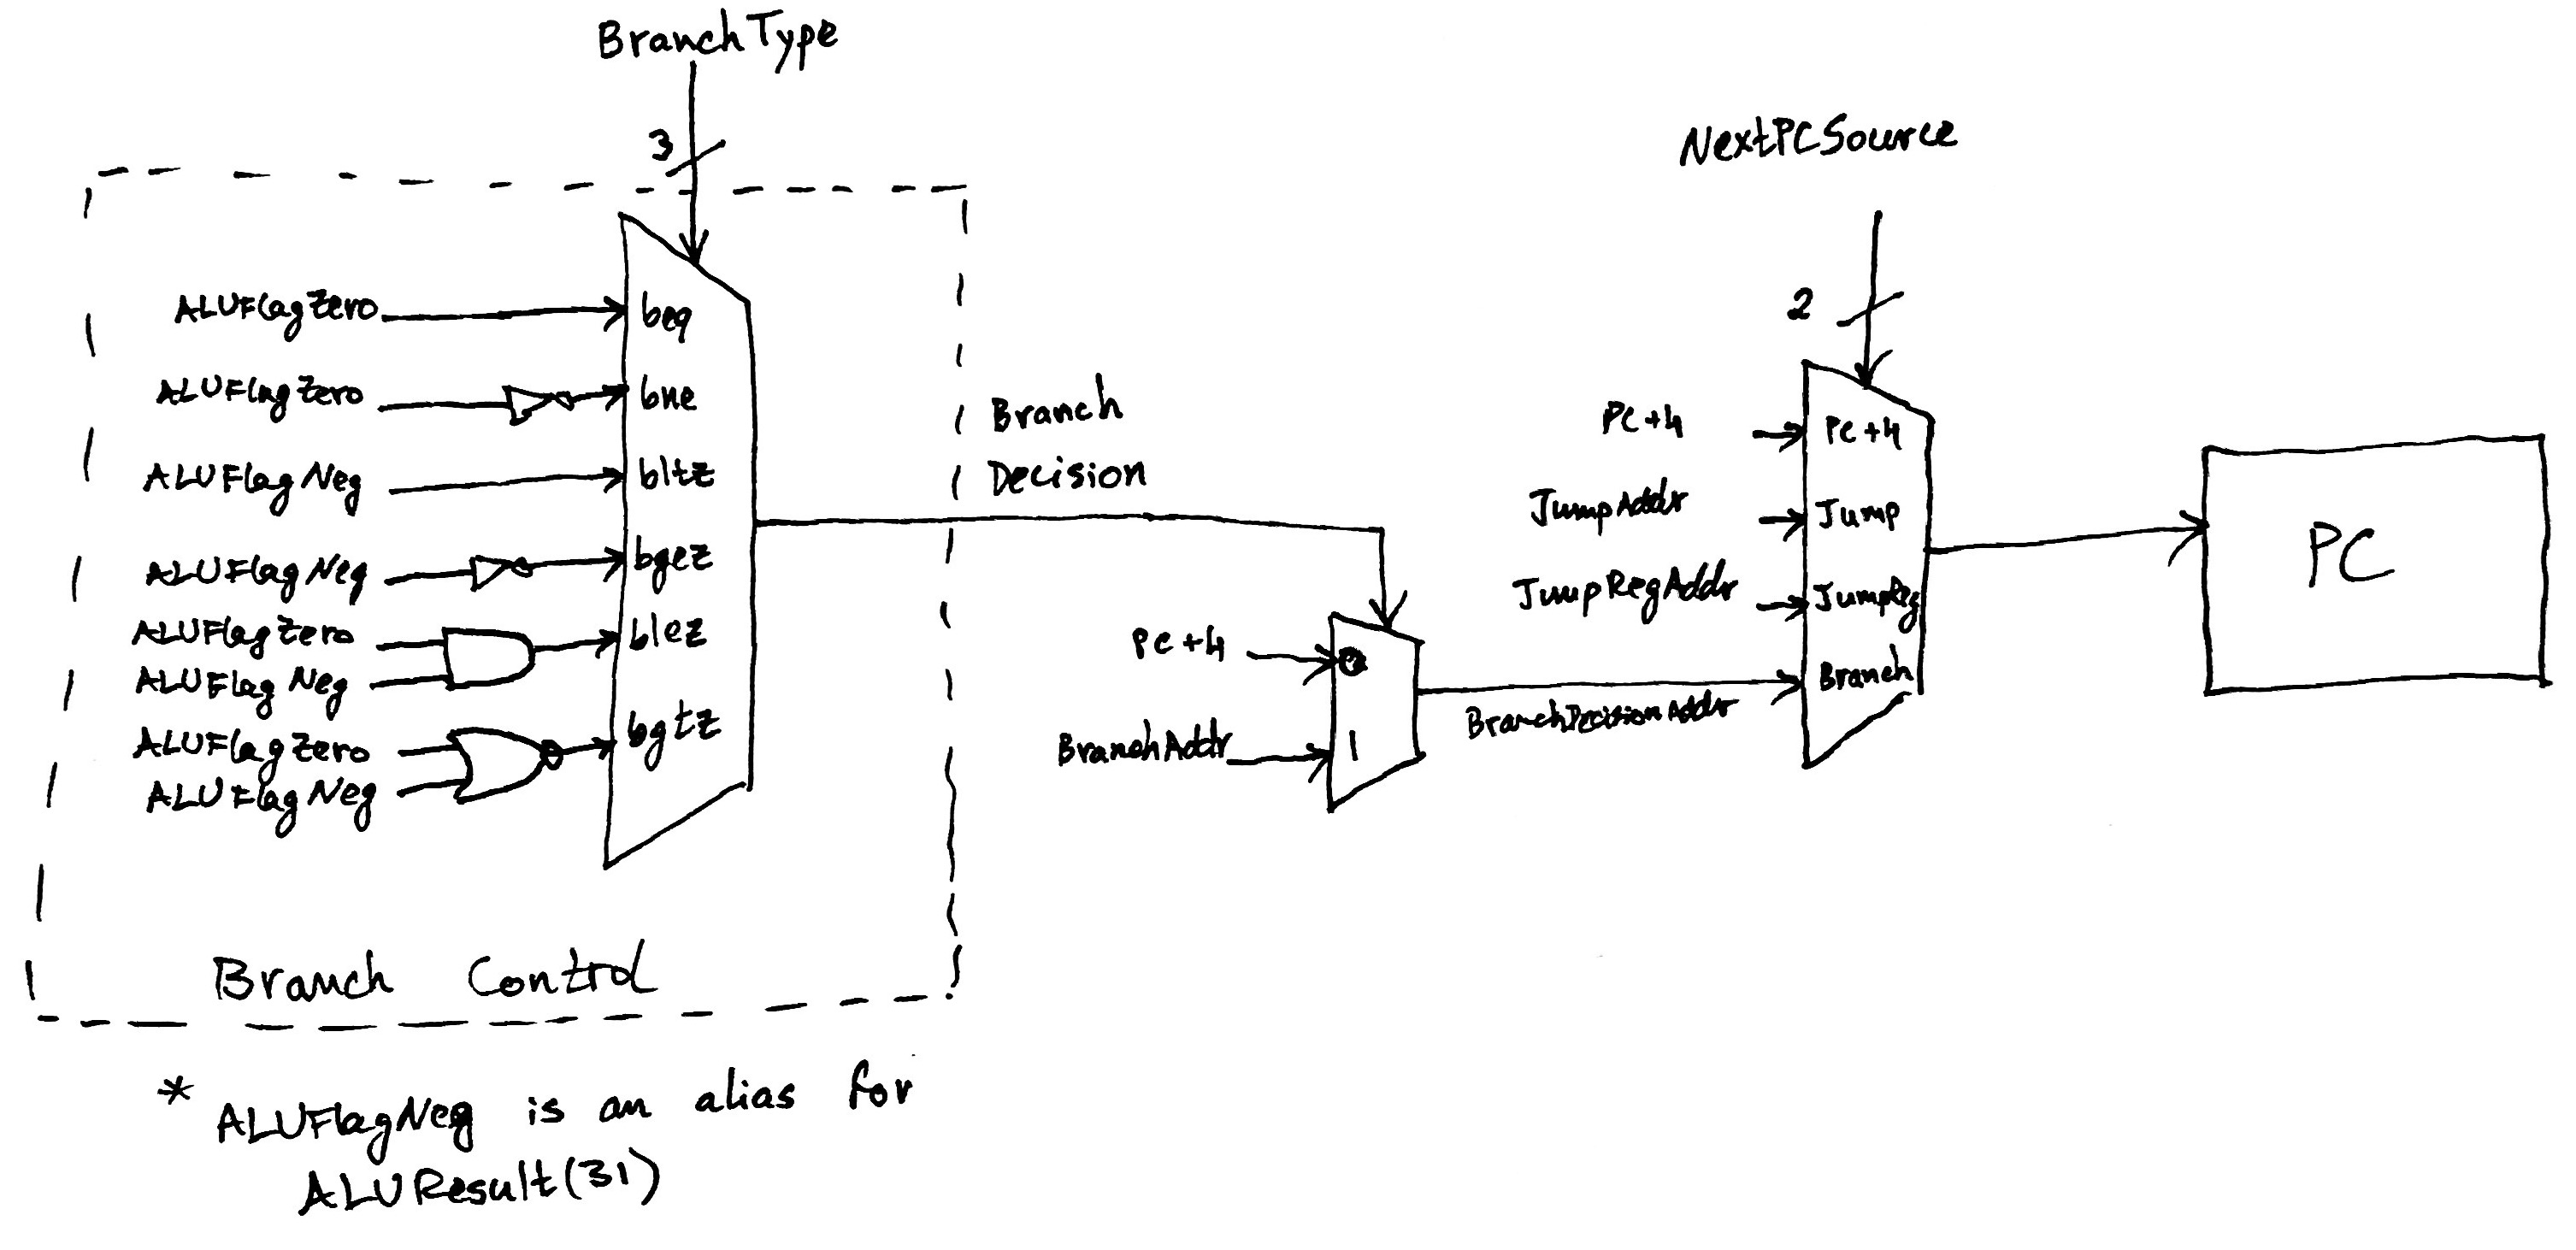 BranchType
3
NextPCSource
2
ALUFlagZero
beq
ALUFlagZero
bne
ALUFlagNeg
bltz
ALUFlagNeg
bgez
ALUFlagZero
ALUFlagNeg
blez
ALUFlagZero
ALUFlagNeg
bgtz
Branch
Decision
PC+4
0
BranchAddr
1
BranchDecisionAddr
PC+4
PC+4
JumpAddr
Jump
JumpRegAddr
JumpReg
Branch
PC
Branch Control
* ALUFlagNeg is an alias for
ALUResult(31)